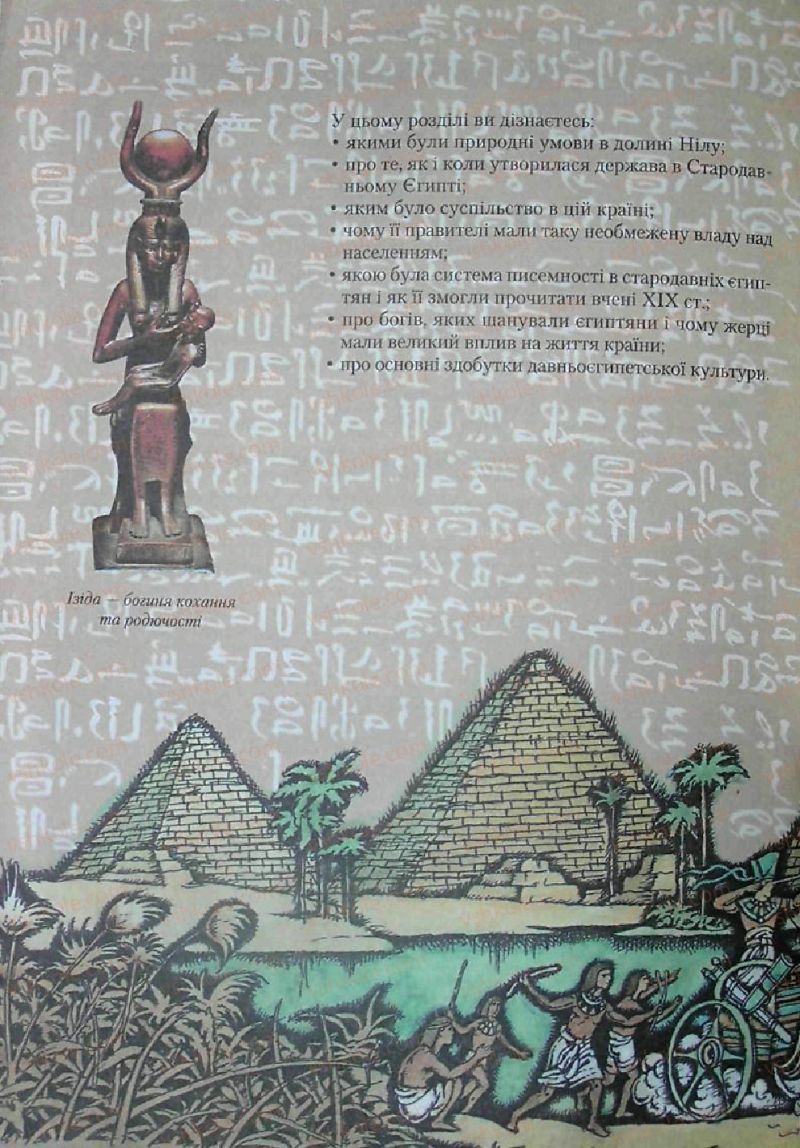 У цьому розділі ви дізнаєтесь:
• якими були природні умови в долині Нілу;
• про те, як і коли утворилася держава в Стародав-
ньому Єгипті;
• яким було суспільство в цій країні;
• чому її правителі мали таку необмежену владу над
населенням;
• якою була система писемності в стародавніх єгип-
тян і як її змогли прочитати вчені XIX ст.;
• про богів, яких шанували єгиптяни і чому жерці
мали великий вплив на життя країни;
• про основні здобутки давньоєгипетської культури.
Ізіда — богиня кохання
та родючості